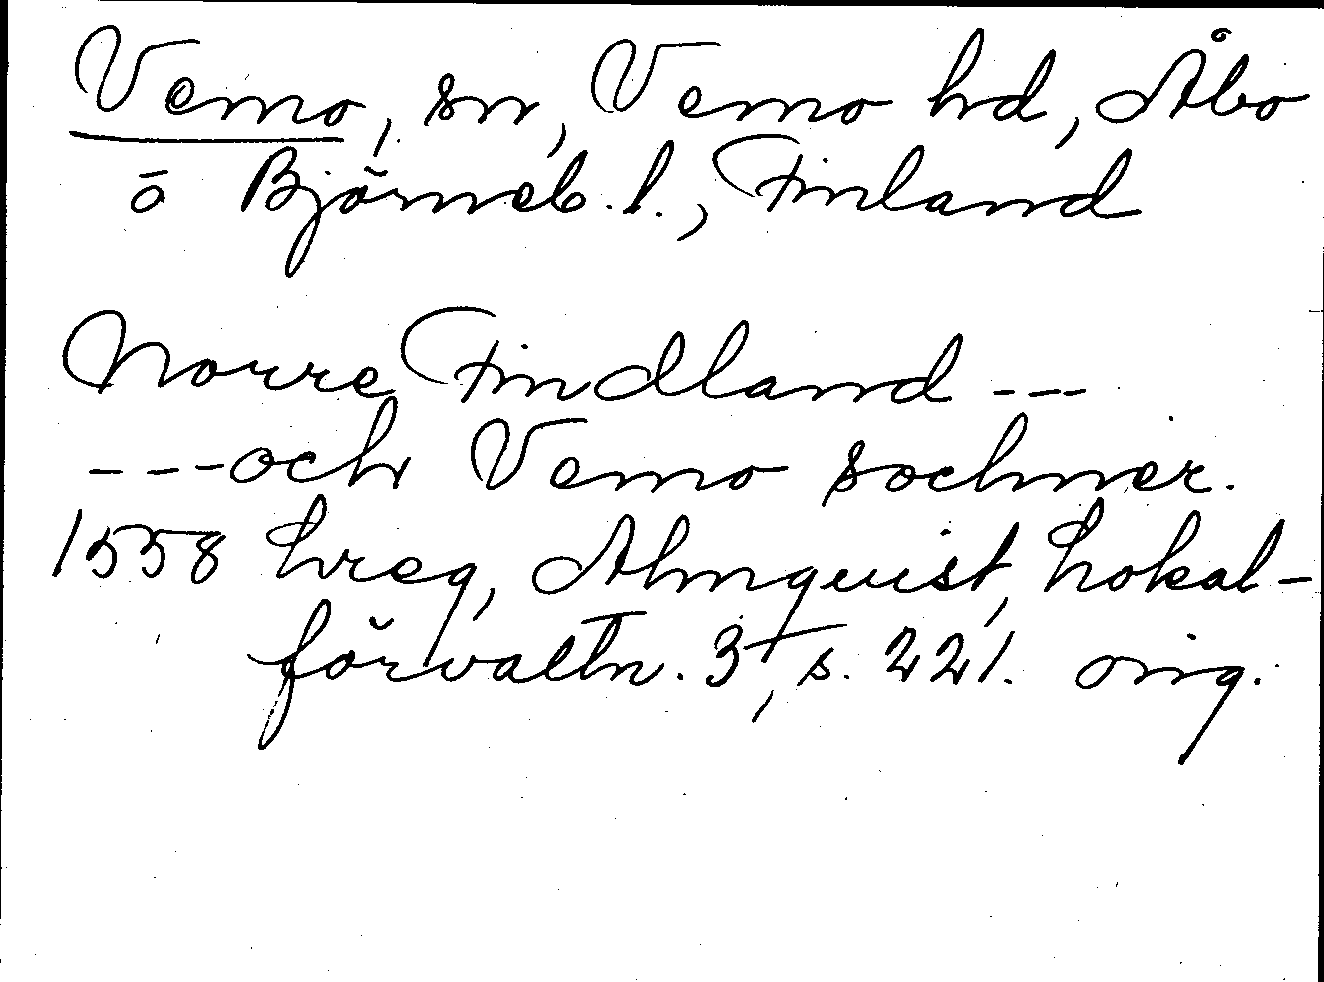 Vemo, sn, Vemo hd, Åbo
o Björneb. l., Finland
Norre Findland ---
--- och Vemo sochner.
1558 Lreg, Almquist, Lokal-
förvaltn. 3, s. 221. orig.